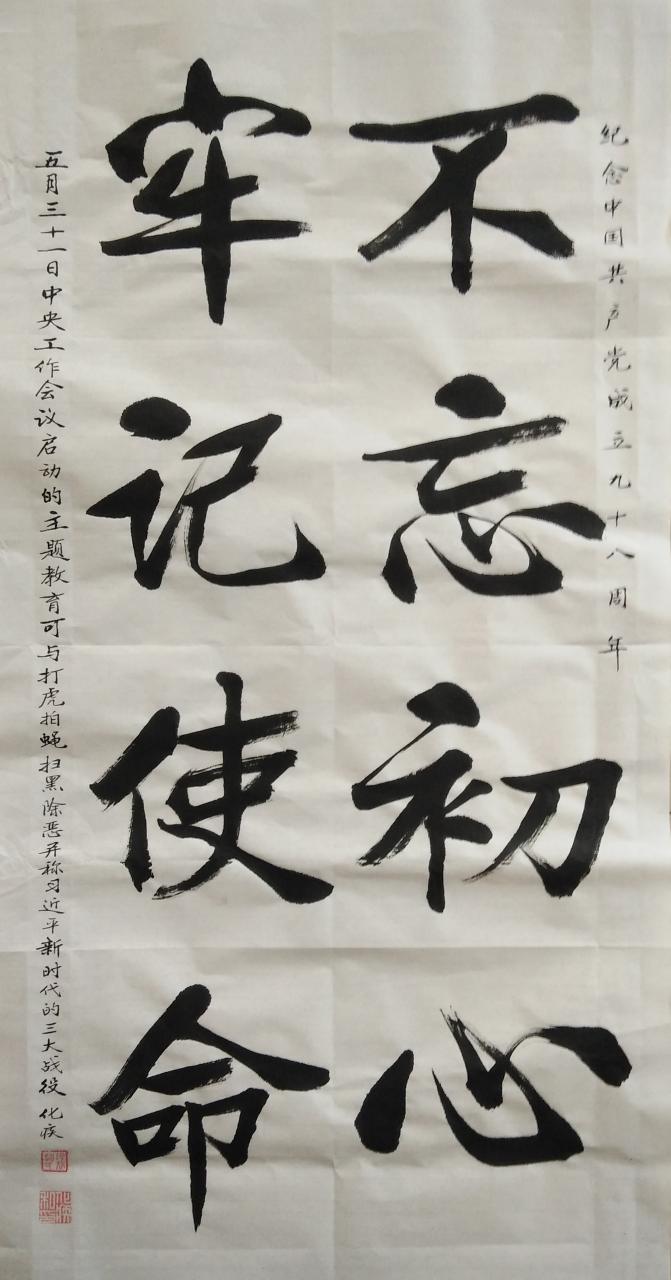 纪念中国共产党成立九十八周年
不忘初心
牢记使命
五月三十一日中央工作会议启动的主题教育可与打虎拍蝇扫黑除恶并称习近平新时代的三大战役 化疾